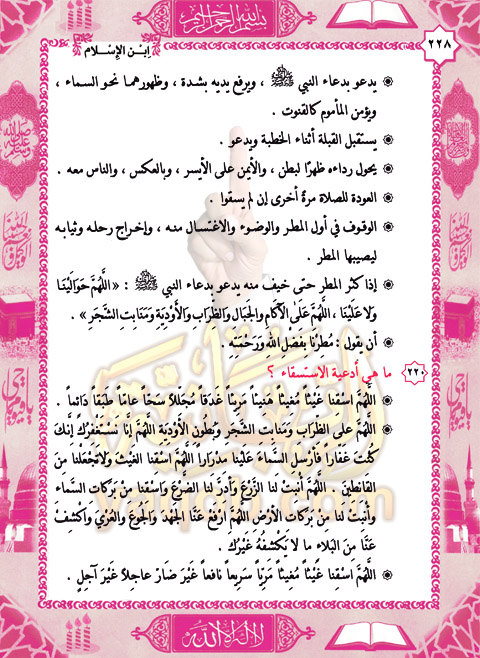 بسم الله الرحمن الرحيم
٢٢٨
ابن الإسلام
يدعو بدعاء النبي ﷺ ، ويرفع يديه بشدة ، وظهورهما نحو السماء ،
ويؤمن المأموم كالقنوت .
يستقبل القبلة أثناء الخطبة ويدعو .
يحول رداءه ظهرًا لبطن ، والأيمن على الأيسر ، وبالعكس ، والناس معه .
العودة للصلاة مرة أخرى إن لم يسقوا .
الوقوف في أول المطر والوضوء والاغتسال منه ، وإخراج رحله وثيابه
ليصيبها المطر .
إذا كثر المطر حتى خيف منه يدعو بدعاء النبي ﷺ : « اللَّهُمَّ حَوَالَيْنَا
وَلا عَلَيْنَا ، اللَّهُمَّ عَلَى الْآكَامِ وَالْجِبَالِ وَالظِّرَابِ وَالْأَوْدِيَةِ وَمَنَابِتِ الشَّجَرِ » .
أن يقول : مُطِرْنَا بِفَضْلِ اللهِ وَرَحْمَتِهِ .
٢٢٠ ما هي أدعية الاستسقاء ؟
اللَّهُمَّ اسْقِنَا غَيْثاً مُغِيثاً هَنِيئاً مَرِيئاً غَدَقاً مُجَلِّلاً سَحّاً عَامّاً طَبَقاً دَائِماً .
اللَّهُمَّ عَلَى الظِّرَابِ وَمَنَابِتِ الشَّجَرِ وَبُطُونِ الأَوْدِيَةِ اللَّهُمَّ إِنَّا نَسْتَغْفِرُكَ إِنَّكَ
كُنْتَ غَفَاراً فَأَرْسِلِ السَّمَاءَ عَلَيْنَا مِدْرَاراً اللَّهُمَّ اسْقِنَا الْغَيْثَ وَلا تَجْعَلْنَا مِنَ
القَانِطِينَ . اللَّهُمَّ أَنْبِتْ لَنَا الزَّرْعَ وَأَدِرَّ لَنَا الضَّرْعَ وَاسْقِنَا مِنْ بَرَكَاتِ السَّمَاء
وأَنْبِتْ لَنَا مِنْ بَرَكَاتِ الأَرْضِ اللَّهُمَّ ارْفَعْ عَنَّا الْجَهْدَ وَالْجُوعَ وَالْعُرْيَ وَاكْشِفْ
عَنَّا مِنَ الْبَلاءِ مَا لا يَكْشِفُهُ غَيْرُكَ .
اللَّهُمَّ اسْقِنَا غَيْثاً مُغِيثاً مَرِيّاً سَرِيعاً نَافِعاً غَيْرَ ضَارٍّ عَاجِلاً غَيْرَ آجِلٍ .
لا إله إلا الله